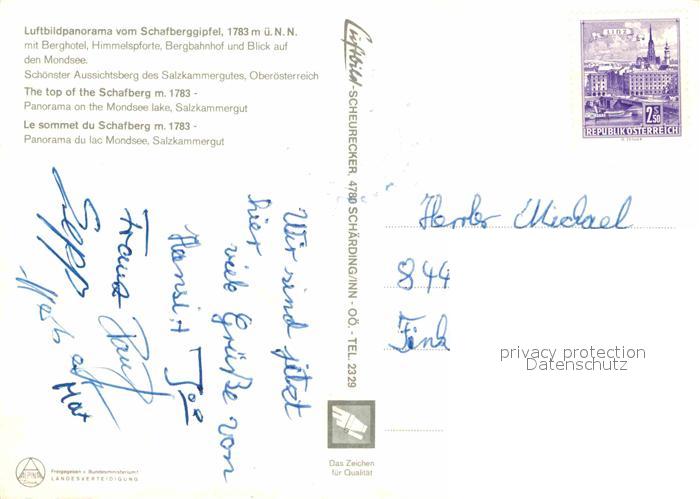 Luftbildpanorama vom Schafberggipfel, 1783 m ü. N. N.
mit Berghotel, Himmelspforte, Bergbahnhof und Blick auf
den Mondsee.
Schönster Aussichtsberg des Salzkammergutes, Oberösterreich
The top of the Schafberg m. 1783 -
Panorama on the Mondsee lake, Salzkammergut
Le sommet du Schafberg m. 1783 -
Panorama du lac Mondsee, Salzkammergut
Wir sind jetzt
hier
viele Grüße von
Hansi +
Franz
Sepp
Luftbild-SCHEURECKER, 4780 SCHÄRDING/INN - OÖ. - TEL. 23 29
LINZ
2 S 50
REPUBLIK ÖSTERREICH
Michael
844
privacy protection
Datenschutz
Das Zeichen
für Qualität
ALPINA
Freigegeben v. Bundesministerium f.
LANDESVERTEIDIGUNG